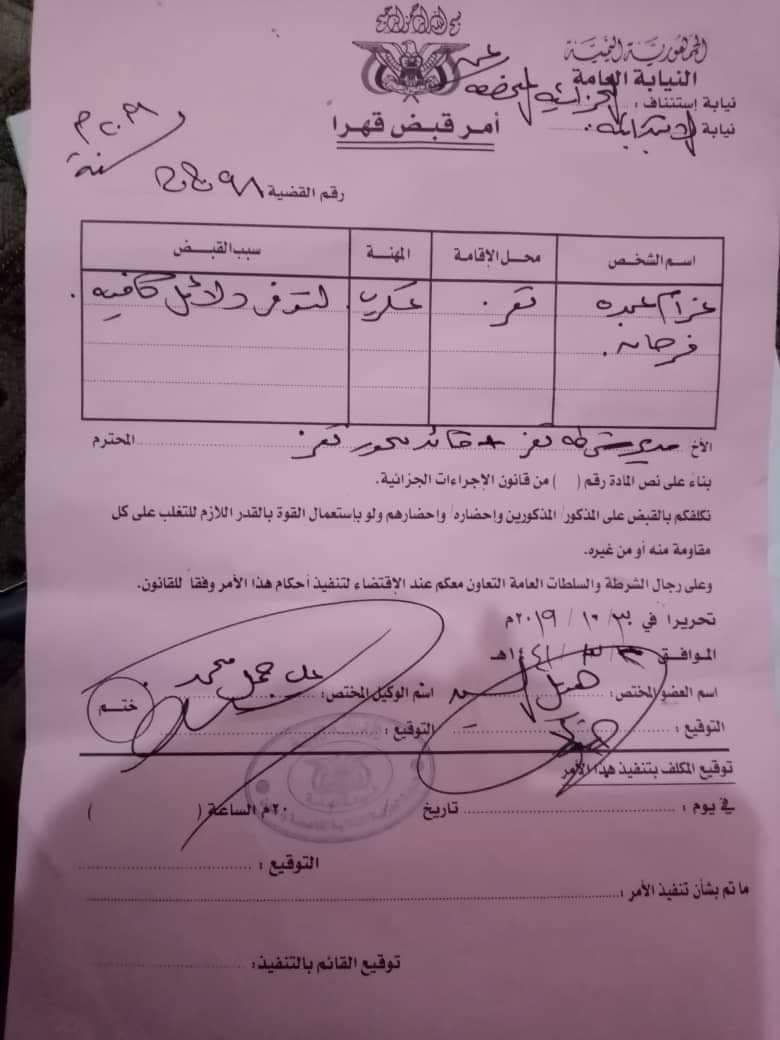 بسم الله الرحمن الرحيم
الجمهورية اليمنية
النيابة العامة
نيابة إستئناف : الجزائية
نيابة الابتدائية
أمر قبض قهرا
سنة
رقم القضية
اسم الشخص
محل الإقامة
المهنة
سبب القبض
عبده فرحان
تعز
عسكري
لتوفر دلائل كافيه
الأخ مدير شرطه تعز + قائد محور تعز المحترم
بناءً على نص المادة رقم ( ) من قانون الإجراءات الجزائية.
نكلفكم بالقبض على المذكور/ المذكورين وإحضاره/ وإحضارهم ولو بإستعمال القوة بالقدر اللازم للتغلب على كل
مقاومة منه أو من غيره.
وعلى رجال الشرطة والسلطات العامة التعاون معكم عند الإقتضاء لتنفيذ أحكام هذا الأمر وفقاً للقانون.
تحريرا في ٣٠ / ١٠ / ٢٠١٩م
الموافق / / ١٤٤١هـ
اسم العضو المختص:
اسم الوكيل المختص: محمد
التوقيع :
التوقيع :
ختم
توقيع المكلف بتنفيذ هذا الأمر
في يوم : تاريخ ٢٠م الساعة ( )
التوقيع :
ما تم بشأن تنفيذ الأمر :
توقيع القائم بالتنفيذ: